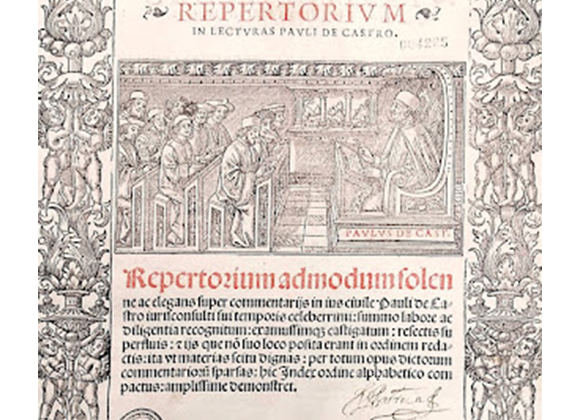 REPERTORIVM
IN LECTVRAS PAVLI DE CASTRO.
004275
PAVLVS DE CAST.
Repertorium admodum solen
ne ac elegans super commentarijs in ius ciuile Pauli de Ca-
stro iurisconsulti sui temporis celeberrimi: summo labore ac
diligentia recognitum: examussimqȝ castigatum: resectis su
perfluis: ⁊ ijs que nō suo loco posita erant in ordinem reda-
ctis: ita vt materias scitu dignas: per totum opus dictorum
commentariorū sparsas: hic Index ordine alphabetico com
pactus: amplissime demonstret.